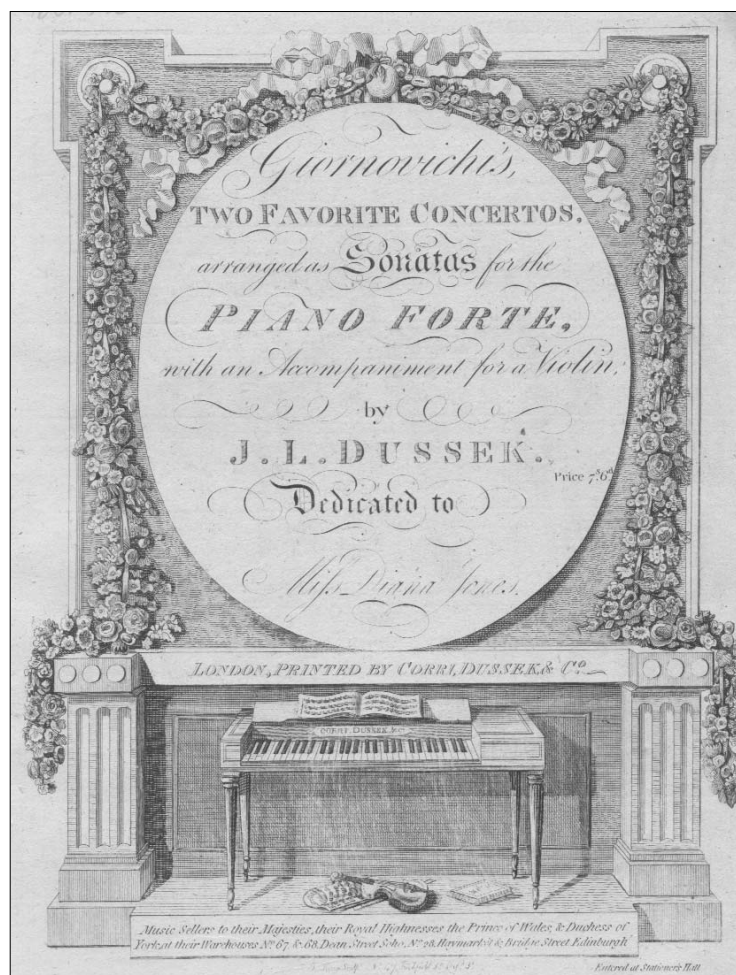 Giornovichi's,
TWO FAVORITE CONCERTOS.
arranged as Sonatas for the
PIANO FORTE,
with an Accompaniment for a Violin,
by
J. L. DUSSEK.
Price 7s. 6d
Dedicated to
Miss Diana Jones.
LONDON, PRINTED BY CORRI, DUSSEK & Co.
CORRI, DUSSEK, & Co
Music Sellers to their Majesties, their Royal Highnesses the Prince of Wales, & Duchess of
York, at their Warehouses No. 67 & 68, Dean Street Soho, No. 28, Haymarket & Bridge Street Edinburgh
Entered at Stationers Hall